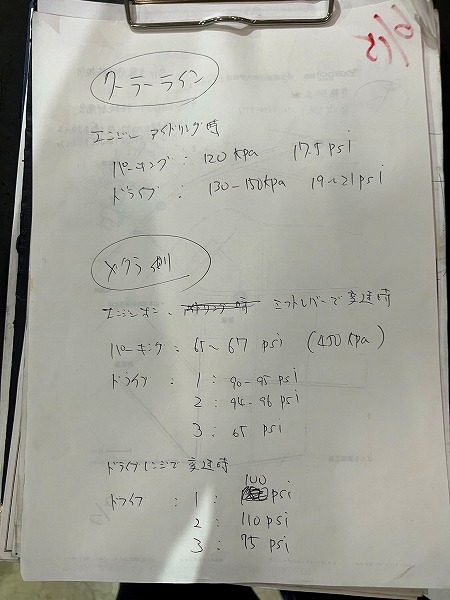 6/15
クーラーライン
エンジン アイドリング時
パーキング : 120 kpa 17.5 psi
ドライブ : 130-150kpa 19~21 psi
メクラ側
エンジンオン、 シフトレバーで変速時
パーキング : 65~67 psi (450 kpa)
ドライブ : 1 : 90-95 psi
2 : 94-96 psi
3 : 65 psi
ドライブレンジで変速時
ドライブ : 1 : 100 psi
2 : 110 psi
3 : 75 psi